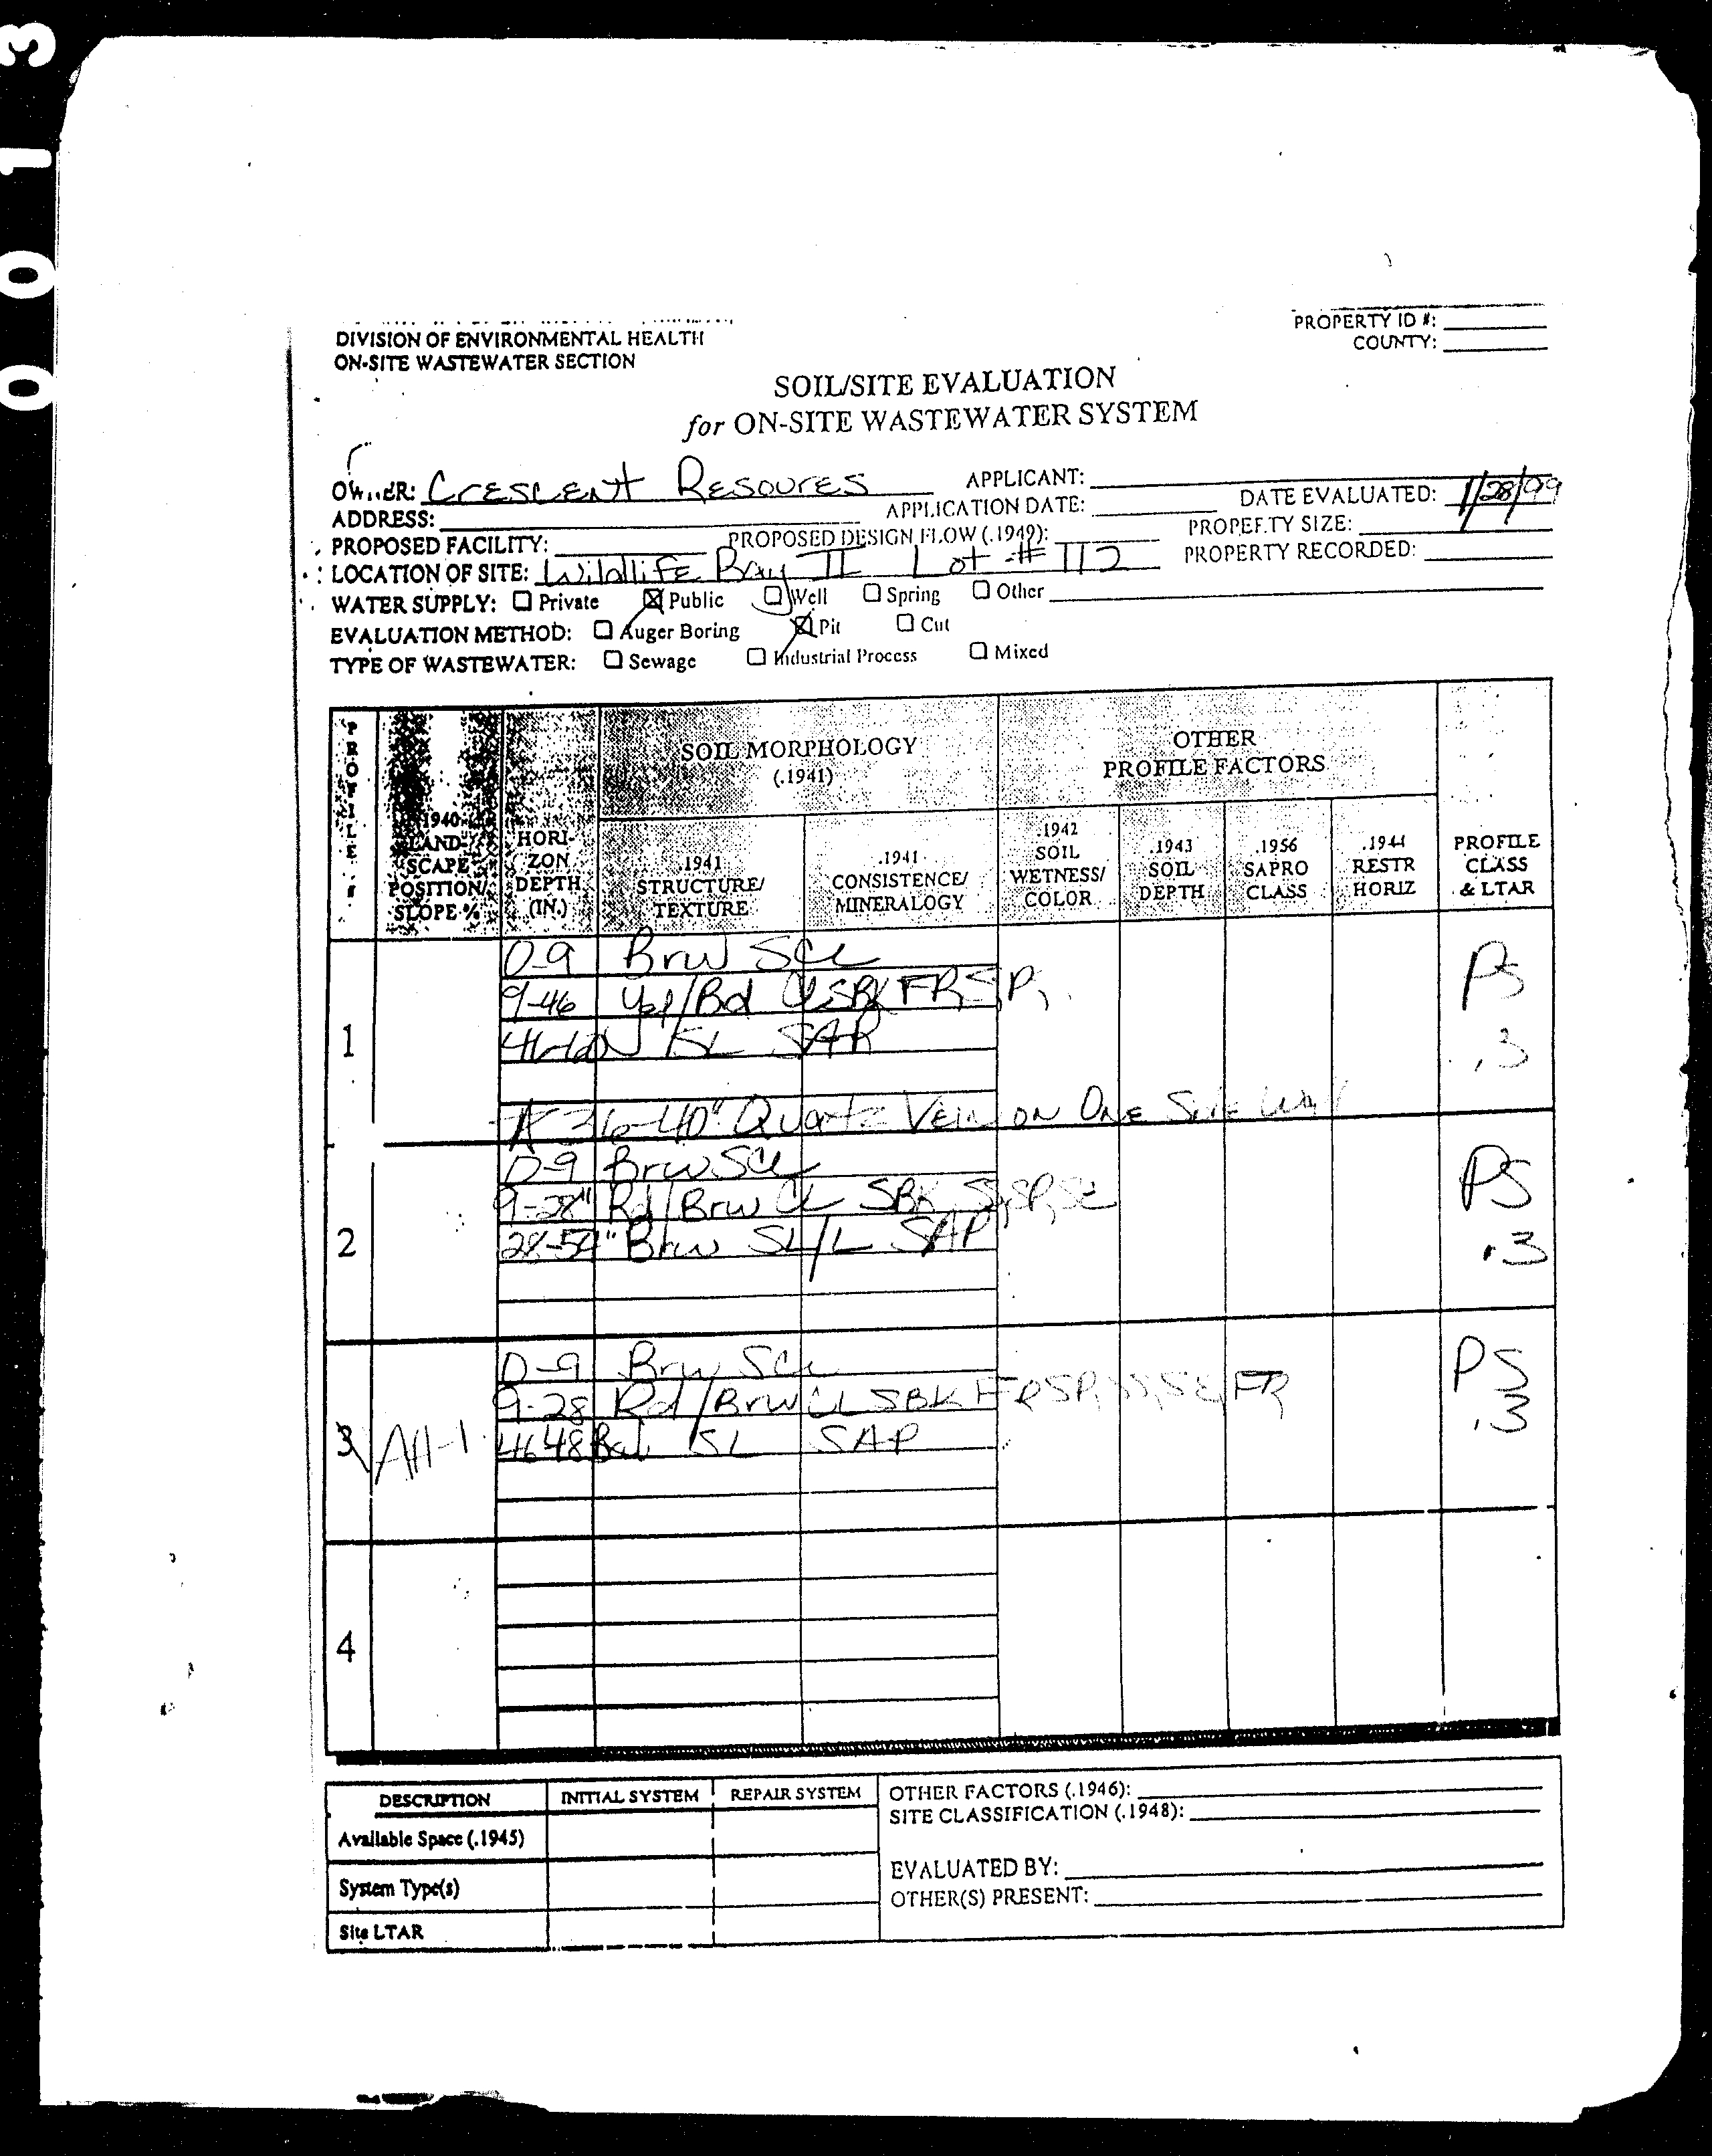 0013
DIVISION OF ENVIRONMENTAL HEALTH
ON-SITE WASTEWATER SECTION
PROPERTY ID #:
COUNTY:
SOIL/SITE EVALUATION
for ON-SITE WASTEWATER SYSTEM
OWNER: Crescent Resoures APPLICANT:
ADDRESS: APPLICATION DATE: DATE EVALUATED: 1/28/99
PROPOSED FACILITY: PROPOSED DESIGN FLOW (.1949): PROPERTY SIZE:
LOCATION OF SITE: Wildlife Bay II Lot # 112 PROPERTY RECORDED:
WATER SUPPLY: ☐ Private ☒ Public ☐ Well ☐ Spring ☐ Other
EVALUATION METHOD: ☐ Auger Boring ☒ Pit ☐ Cut
TYPE OF WASTEWATER: ☐ Sewage ☐ Industrial Process ☐ Mixed
PROFILE #
.1940 LANDSCAPE POSITION/ SLOPE %
HORIZON DEPTH (IN.)
SOIL MORPHOLOGY
(.1941)
OTHER
PROFILE FACTORS
.1941 STRUCTURE/ TEXTURE
.1941 CONSISTENCE/ MINERALOGY
.1942 SOIL WETNESS/ COLOR
.1943 SOIL DEPTH
.1956 SAPRO CLASS
.1944 RESTR HORIZ
PROFILE CLASS & LTAR
1
0-9 Brw SCL PS
9-46 Yel/Rd CL SBK FR, S, P,
SL SAP .3
36-40" Quartz Vein on One Side Wall
2
0-9 Brw SCL PS
9-28" Rd/Brw CL SBK SS, SP, SE
28-54" Brw SL/L SAP .3
3 Alt-1
0-9 Brw SCL PS
9-28 Rd/Brw CL SBK FR SP, SS, SE, FR .3
4648 SL SAP
4
DESCRIPTION INITIAL SYSTEM REPAIR SYSTEM
Available Space (.1945)
System Type(s)
Site LTAR
OTHER FACTORS (.1946):
SITE CLASSIFICATION (.1948):
EVALUATED BY:
OTHER(S) PRESENT: